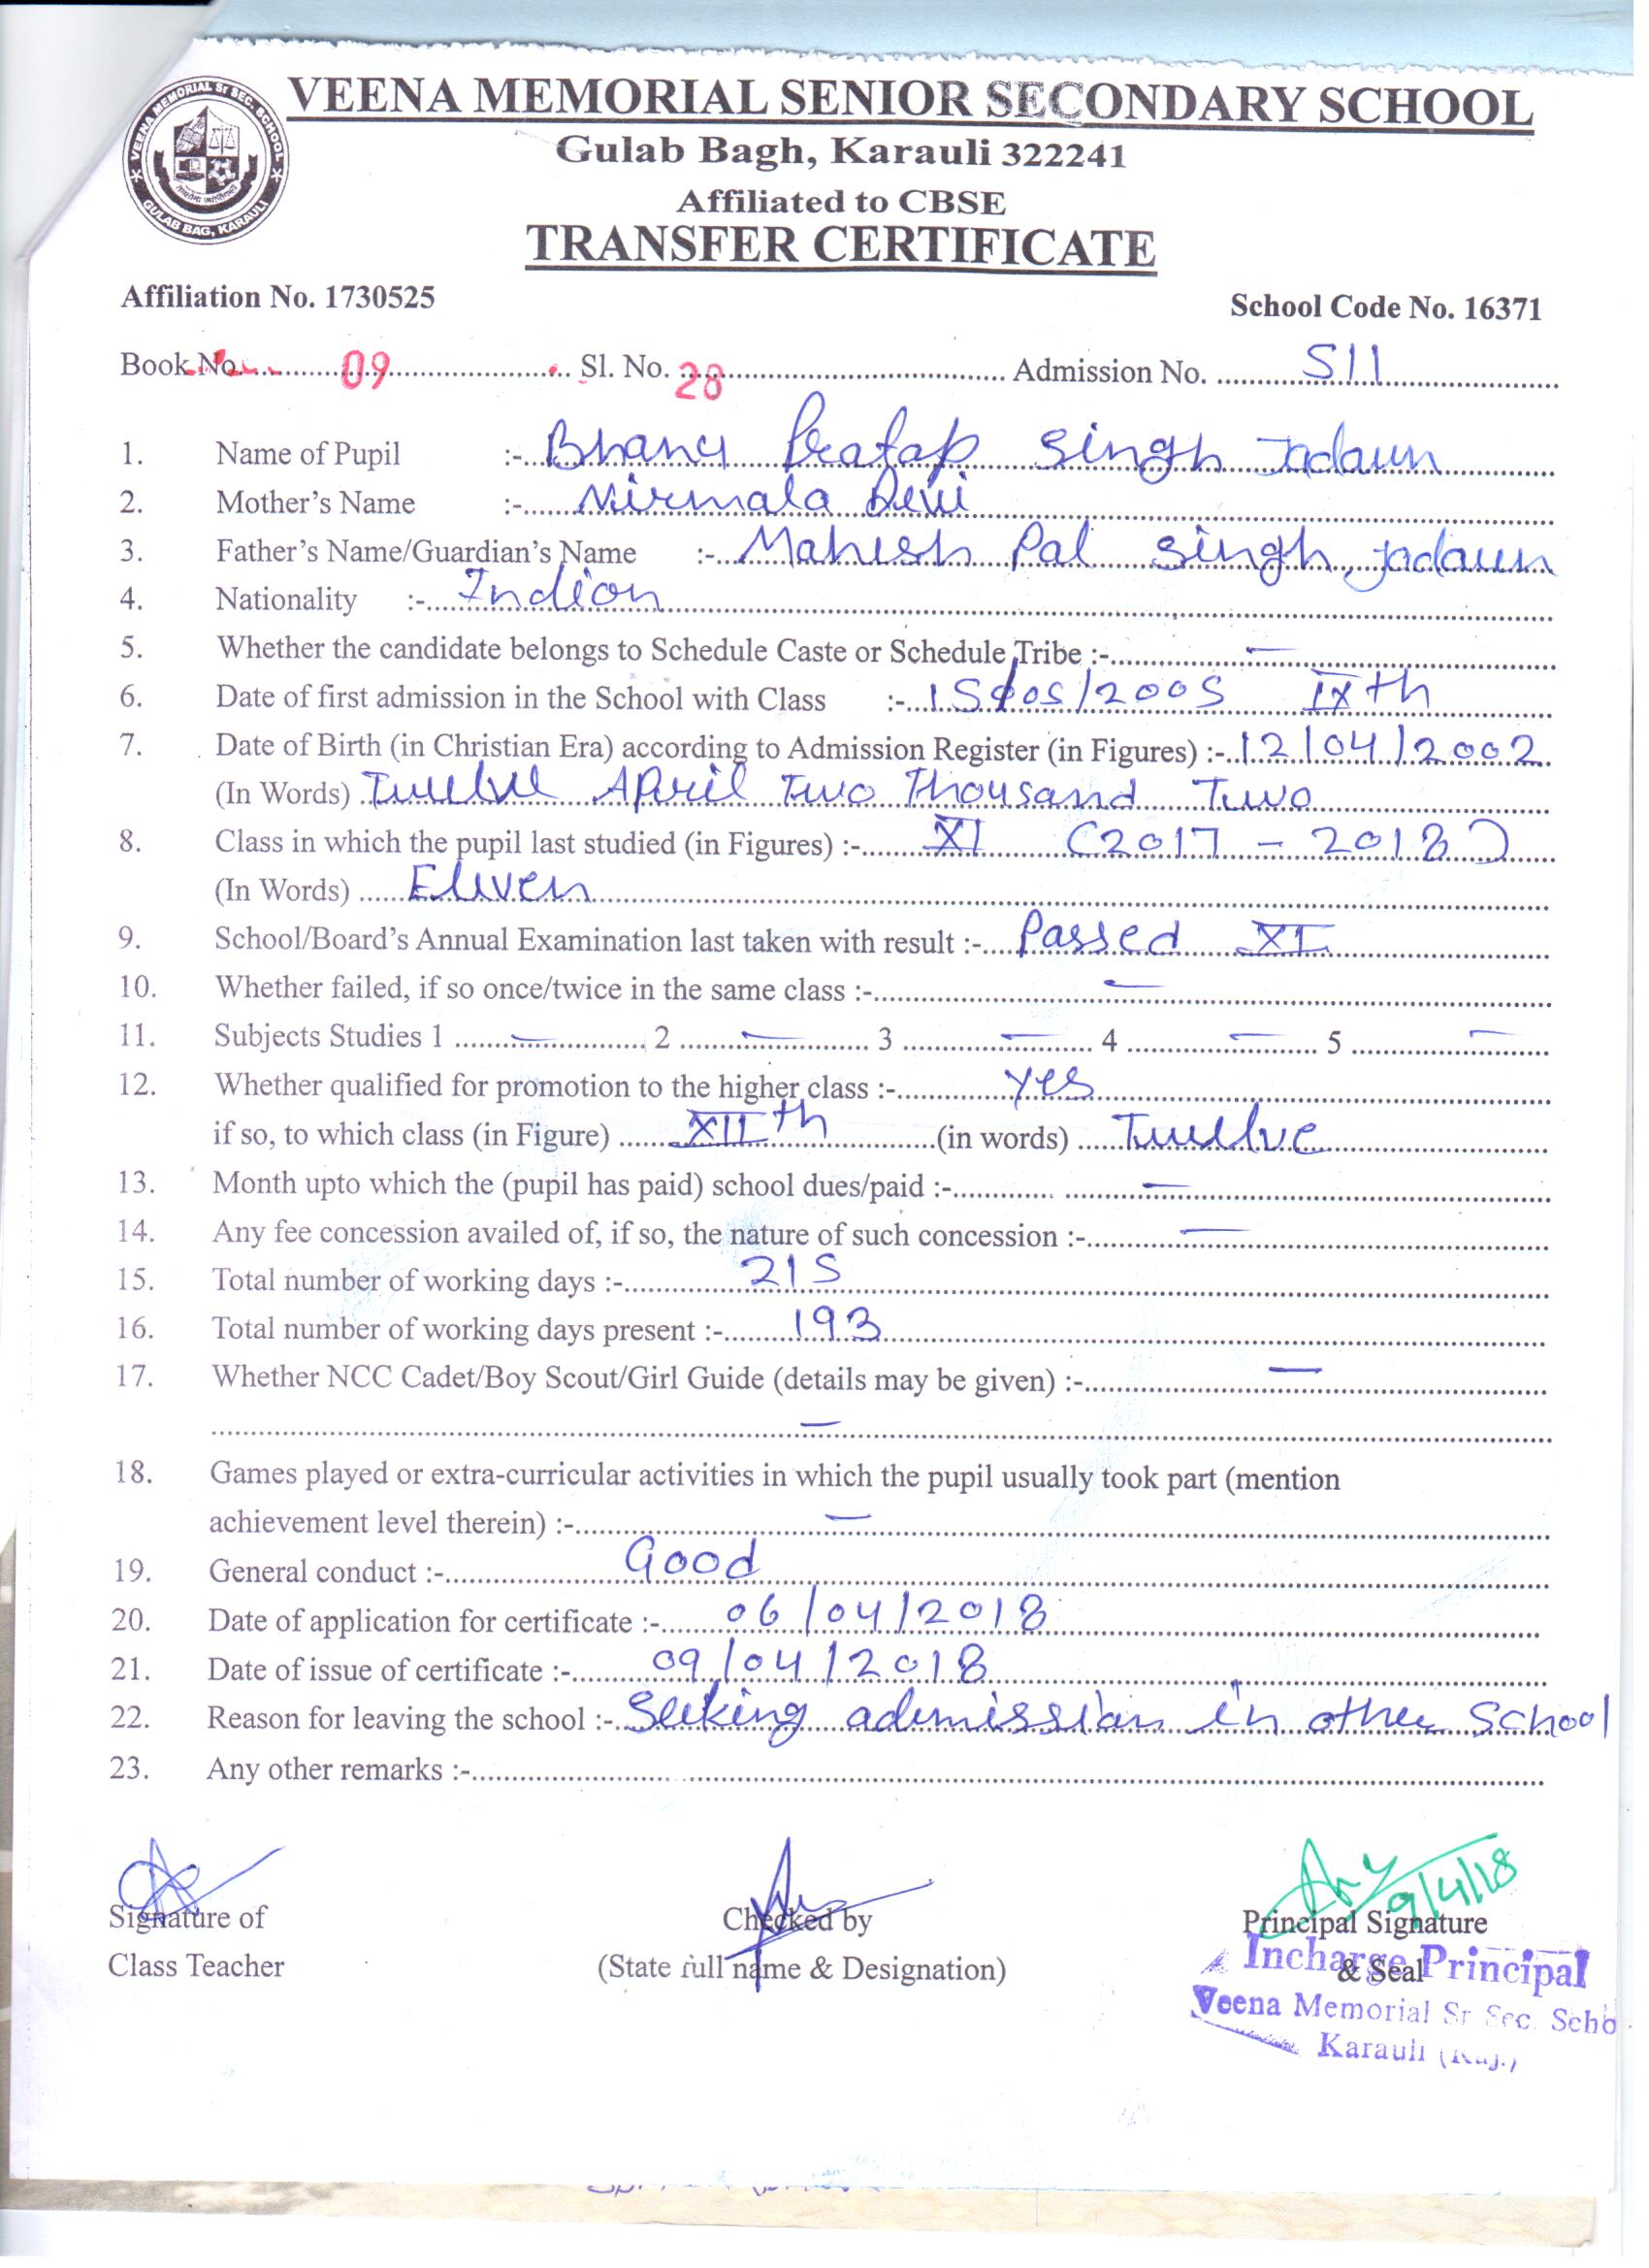 VEENA MEMORIAL Sr SEC. SCHOOL
GULAB BAG, KARAULI
VEENA MEMORIAL SENIOR SECONDARY SCHOOL
Gulab Bagh, Karauli 322241
Affiliated to CBSE
TRANSFER CERTIFICATE
Affiliation No. 1730525 School Code No. 16371
Book No. 09 Sl. No. 28 Admission No. 511
1. Name of Pupil :- Bhanu Pratap Singh Jadaun
2. Mother's Name :- Nirmala Devi
3. Father's Name/Guardian's Name :- Mahesh Pal Singh Jadaun
4. Nationality :- Indian
5. Whether the candidate belongs to Schedule Caste or Schedule Tribe :- —
6. Date of first admission in the School with Class :- 15/05/2005 IXth
7. Date of Birth (in Christian Era) according to Admission Register (in Figures) :- 12/04/2002
(In Words) Twelve April Two Thousand Two
8. Class in which the pupil last studied (in Figures) :- XI (2017 - 2018)
(In Words) Eleven
9. School/Board's Annual Examination last taken with result :- Passed XI
10. Whether failed, if so once/twice in the same class :- —
11. Subjects Studies 1 — 2 — 3 — 4 — 5 —
12. Whether qualified for promotion to the higher class :- Yes
if so, to which class (in Figure) XIIth (in words) Twelve
13. Month upto which the (pupil has paid) school dues/paid :- —
14. Any fee concession availed of, if so, the nature of such concession :- —
15. Total number of working days :- 215
16. Total number of working days present :- 193
17. Whether NCC Cadet/Boy Scout/Girl Guide (details may be given) :- —
—
18. Games played or extra-curricular activities in which the pupil usually took part (mention
achievement level therein) :- —
19. General conduct :- Good
20. Date of application for certificate :- 06/04/2018
21. Date of issue of certificate :- 09/04/2018
22. Reason for leaving the school :- Seeking admission in other School
23. Any other remarks :-
9/4/18
Signature of Checked by Principal Signature
Class Teacher (State full name & Designation) & Seal
Incharge Principal
Veena Memorial Sr Sec. Scho
Karauli (Raj.)